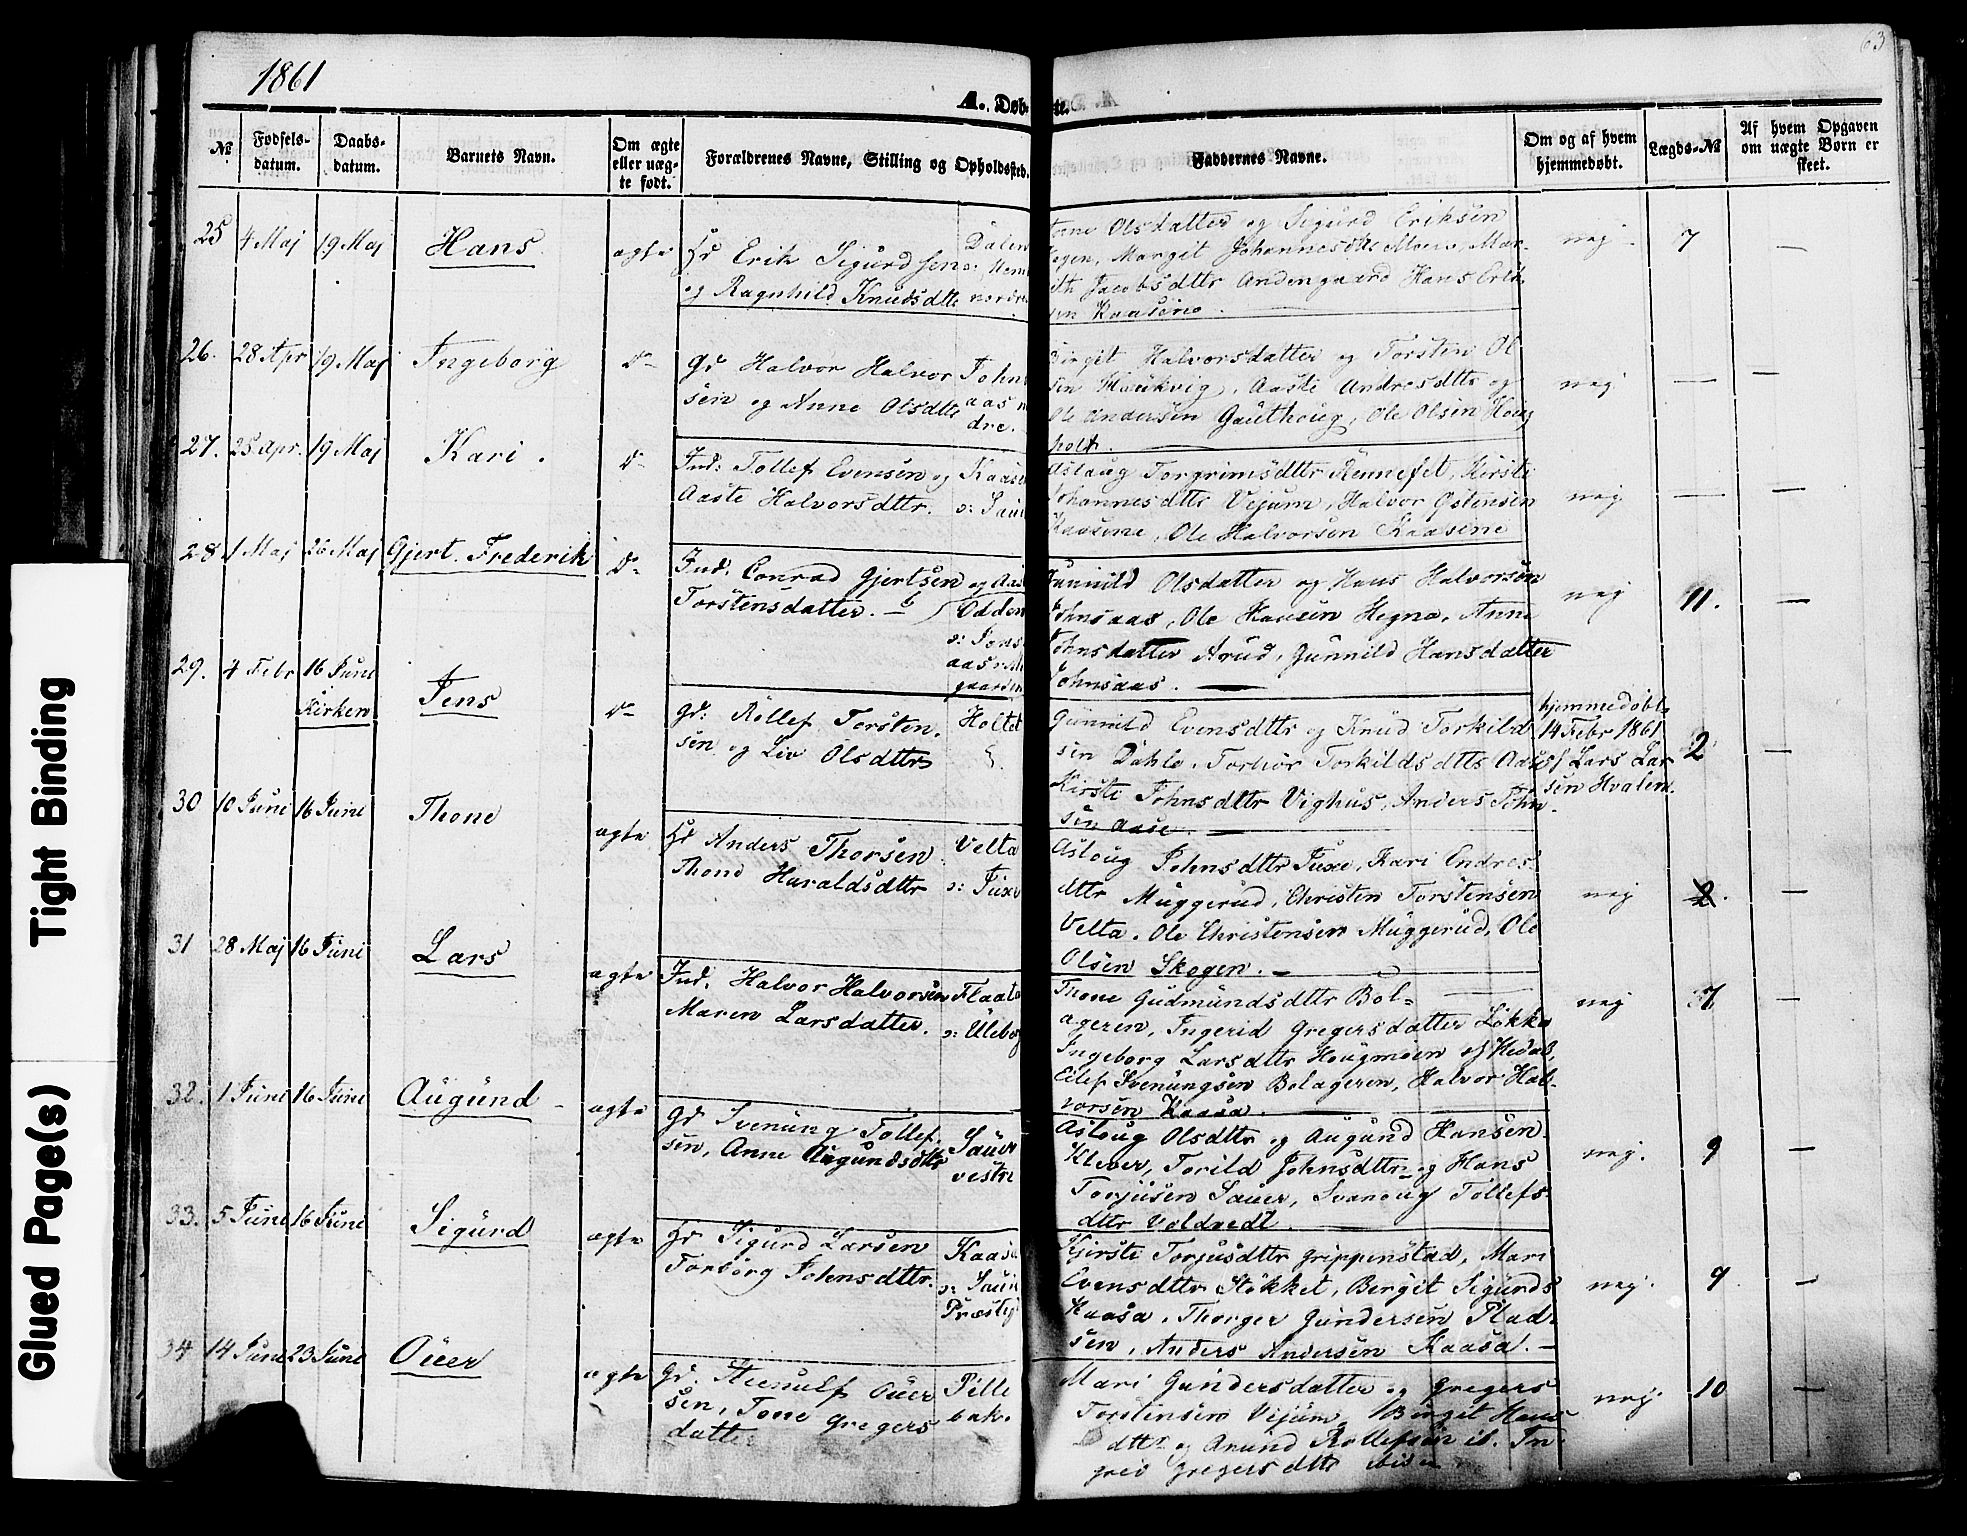 1861
63
A. Døbte.
№
Fødsels-
datum.
Daabs-
datum.
Barnets Navn.
Om ægte
eller uæg-
te født.
Forældrenes Navne, Stilling og Opholdssted.
Faddernes Navne.
Om og af hvem
hjemmedøbt.
Lægds-№
Af hvem Opgaven
om uægte Børn er
skeet.
25 4 Maj 19 Maj Hans ægte
Erik Sigurdsen
og Ragnhild Knudsdttr nordre
Dalen
Olsdatter og Sigurd Eriksen
Margit Johannesdttr Moen, Mar-
Jacobsdttr Andengaard Hans Erik-
Kaasene
nej 7 —
26. 28 Apr 19 Maj Ingeborg do
Gd Halvor Halvor
sen og Anne Olsdttr
Johns
aas
dre.
Birgit Halvorsdatter og Torsten Ol
sen, Aaste Andresdttr og
Ole Andersen Gauthoug, Ole Olsen
holt.
nej — —
27. 25 Apr. 19 Maj Kari. do
Ind: Tollef Evensen og
Aaste Halvorsdttr.
Aslaug Torgrimsdttr Kirsti
Johannesdttr Vejum, Halvor Østensen
Kaasene, Ole Halvorsen Kaasene
nej — —
28 1 Maj 26 Maj Gjert. Frederik do
Ind: Conrad Gjertsen og
Torstensdatter.
Odden
Gunnild Olsdatter og Hans Halvorsen
Johnsaas, Ole Hansen Hegna, Anne
Johnsdatter Arud, Gunnild Hansdatter
Johnsaas.
nej 11. —
29. 4 Febr 16 Juni
Kirken
Jens do
Gd: Rollef Torsten.
sen og Liv Olsdttr
Holtet
Gunnild Evensdttr og Knud Torkild
sen Dahle, Torbor Torkildsdttr Aase
Kirsti Johnsdttr Vighus, Anders John-
sen Aase.
hjemmedøbt
14 Febr 1861
af Lars Lar
sen Hvalen.
2 —
30 10 Juni 16 Juni Thone ægte
Anders Thorsen
Thone Haraldsdttr
Velta
Aslaug Johnsdttr Juxe, Kari Endres
dttr Muggerud, Christen Torstensen
Velta. Ole Christensen Muggerud, Ole
Olsen Skogen. —
nej 2. —
31 28 Maj 16 Juni Lars ægte
Ind. Halvor Halvorsen
Maren Larsdatter.
Thone Gudmundsdttr Bol-
ageren, Ingerid Gregersdatter Løkka
Ingeborg Larsdttr Hougmoen af Hedal,
Eilef Svenungsen Bolageren, Halvor Hal-
vorsen Kaasa.
nej 7 —
32. 1 Juni 16 Juni Augund ægte
Gd Svenung Tollef.
sen, Anne Augundsdttr
Sauer
vestre
Aslaug Olsdttr og Augund Hansen
Klever, Torild Johnsdttr og Hans
Torjusen Sauer, Svanoug Tollefs
dttr Voldvedt
nej. 9 —
33. 5 Juni 16 Juni Sigurd ægte
Sigurd Larsen
Torborg Johnsdttr.
Kaasa
Kjirsti Torjusdttr Grippenstad, Mari
Evensdttr Stokket, Bergit Sigurds
Kaasa, Thorger Gundersen Plad-
sen, Anders Andersen Kaasa. —
nej. 9 —
34 14 Juni 23 Juni Ouer ægte
Gd. Steenulf Ouer
sen, Tone Gregers
datter
Pille
bak.
Mari Gundersdatter og Gregers
Torstensen Vejum, Birgit Hans
dttr og Anund Rollefsen
Gregersdttr
nej. 10 —
Tight Binding
Glued Page(s)